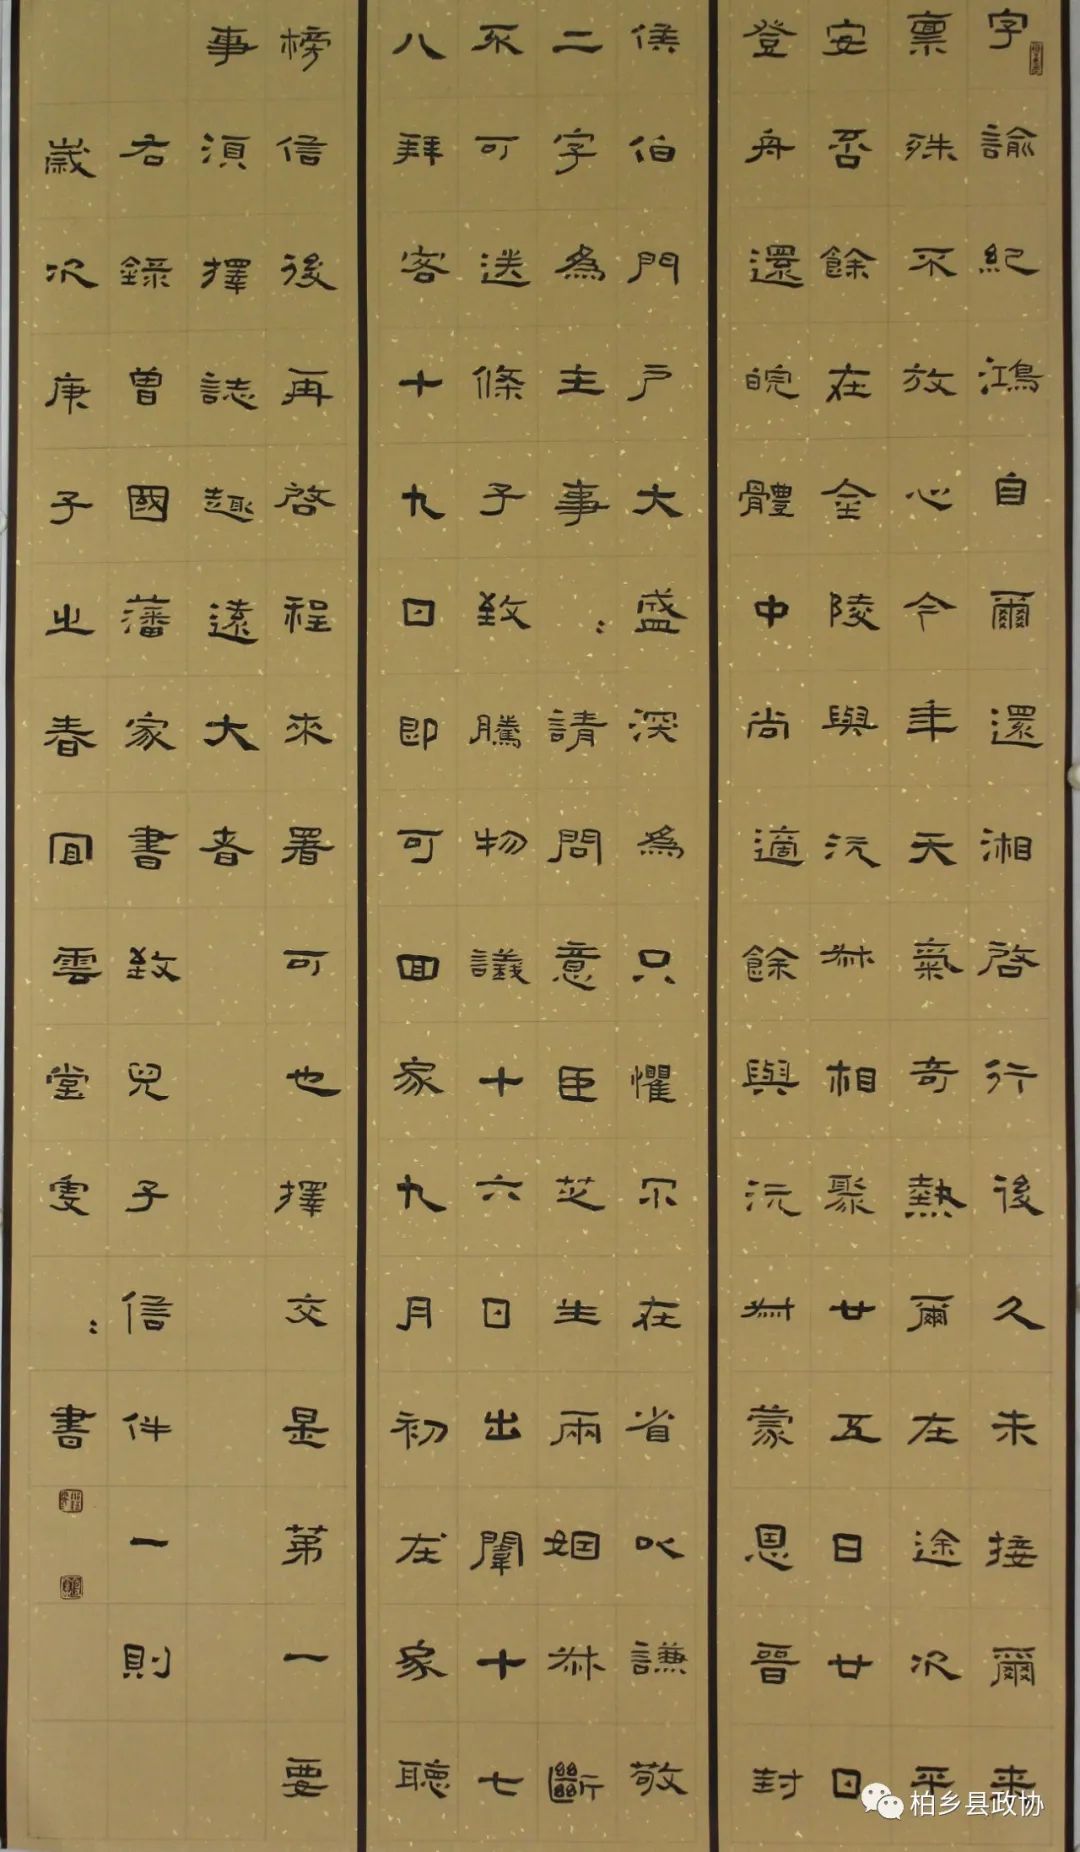 字諭紀鴻自爾還湘啓行後久未接爾来
禀殊不放心今年天氣奇熱爾在途次平
安否餘在金陵與沅叔相聚廿五日廿日
登舟還皖體中尚適餘與沅叔蒙恩晉封
侯伯門戶大盛深為只懼尔在省以謙敬
二字為主事〻請問意臣芝生兩姻叔斷
不可送條子致騰物議十六日出闈十七
八拜客十九日即可回家九月初在家聽
榜信後再啓程來署可也擇交是第一要
事須擇誌趣遠大者
右錄曾國藩家書致兒子信件一則
歲次庚子之春冝雲堂雯〻書
柏乡县政协